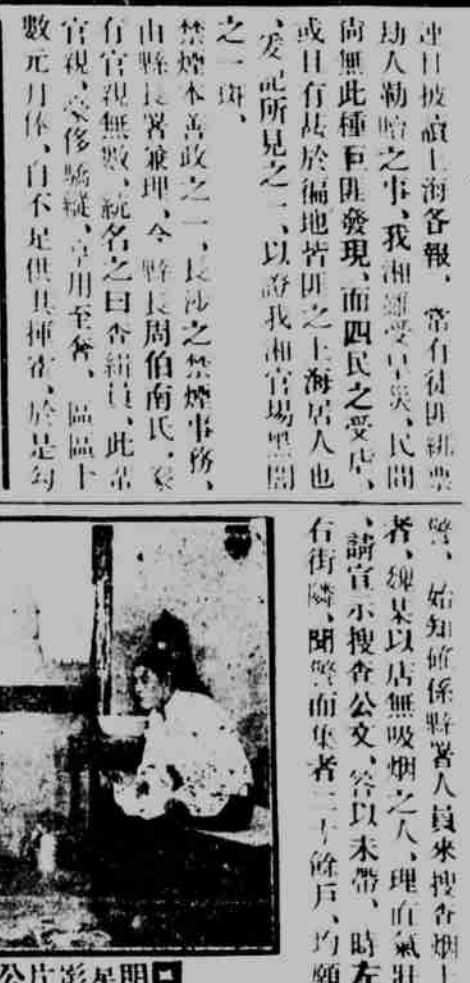 連日披讀上海各報、常有徒匪綁票
劫人勒贖之事、我湘雖受旱災、民間
尚無此種巨匪發現、而四民之受虐、
或且有甚於徧地皆匪之上海居人也
、爰記所見之一、以證我湘官塲黑闇
之一斑、
禁煙本善政之一、長沙之禁煙事務、
由縣長署兼理、今縣長周伯南氏、
有官親無數、統名之曰查緝員、此
官親、驕縱、享用至奢、區區十
數元月俸、自不足供其揮霍、於是勾
警、始知確係縣署人員來搜查烟土
者、某以店無吸烟之人、理直氣壯
、請宣示搜查公文、答以未帶、時左
右街隣、聞警而集者二十餘戶、均願
公片影星明